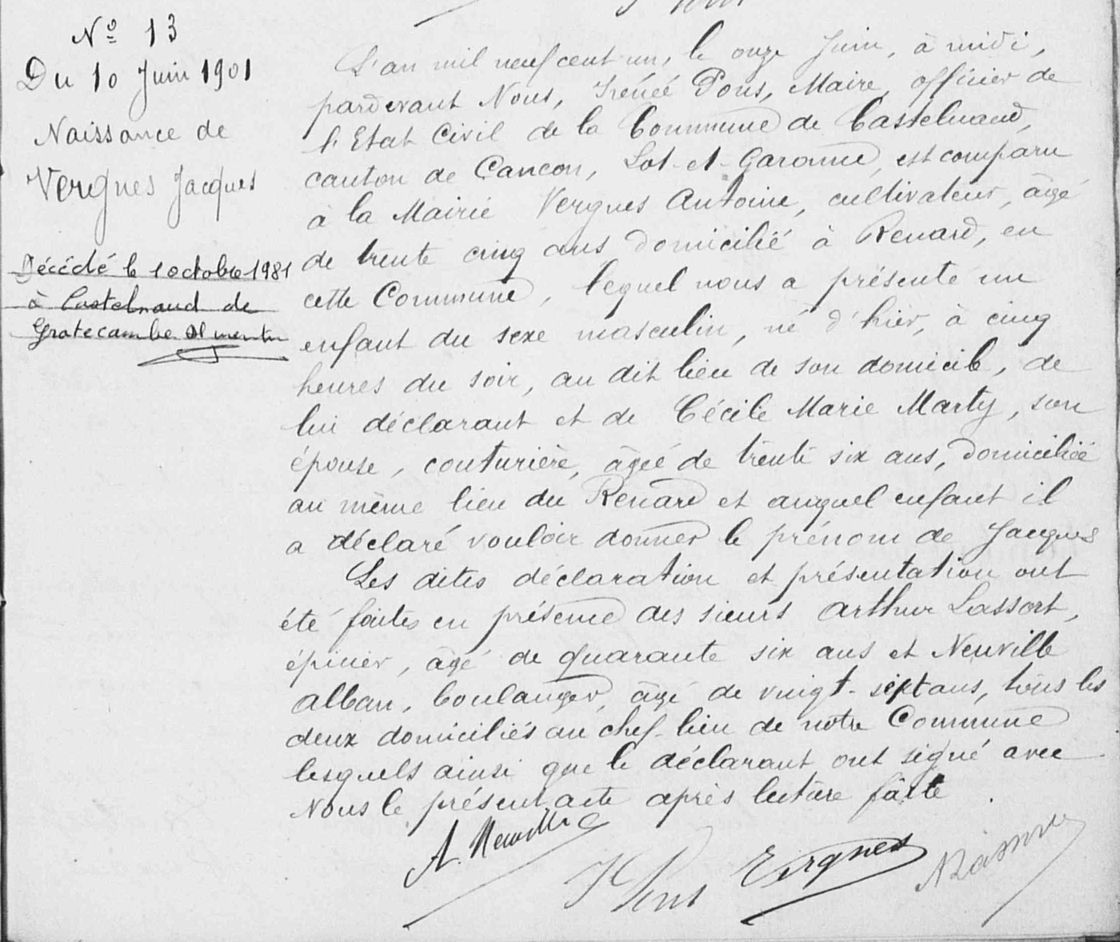 N° 13
Du 10 Juin 1901
Naissance de
Vergnes Jacques
Décédé le 1 octobre 1981
à Castelnaud de
Gratecambe
L'an mil neuf cent un, le onze Juin, à midi,
pardevant Nous, Irénée Pons, Maire, officier de
l'Etat Civil de la Commune de Castelnaud,
canton de Cancon, Lot-et-Garonne, est comparu
à la Mairie Vergnes Antoine, cultivateur, âgé
de trente cinq ans domicilié à Renard, en
cette Commune, lequel nous a présenté un
enfant du sexe masculin, né d'hier, à cinq
heures du soir, au dit lieu de son domicile, de
lui déclarant et de Cécile Marie Marty, son
épouse, couturière, âgée de trente six ans, domiciliée
au même lieu du Renard et auquel enfant il
a déclaré vouloir donner le prénom de Jacques
Les dites déclaration et présentation ont
été faites en présence des sieurs Arthur Lassort,
épicier, âgé de quarante six ans et Neuville
Alban, boulanger, âgé de vingt-sept ans, tous les
deux domiciliés au chef-lieu de notre Commune
lesquels ainsi que le déclarant ont signé avec
Nous le présent acte après lecture faite.
A. Neuville
I Pons
Vergnes